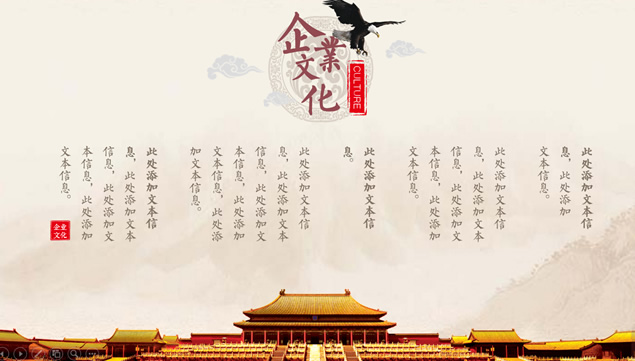 企業文化
CULTURE
此处添加文本信
息，此处添加
文本信息。
此处添加文本信
息，此处添加文本
信息，此处添加文
本信息，此处添加
文本信息。
此处添加文本信
息。
此处添加文本信
息，此处添加文本
信息，此处添加文
本信息，此处添加
文本信息，此处添
加文本信息。
此处添加文本信
息，此处添加文本
信息，此处添加文
本信息，此处添加
文本信息。
企业
文化